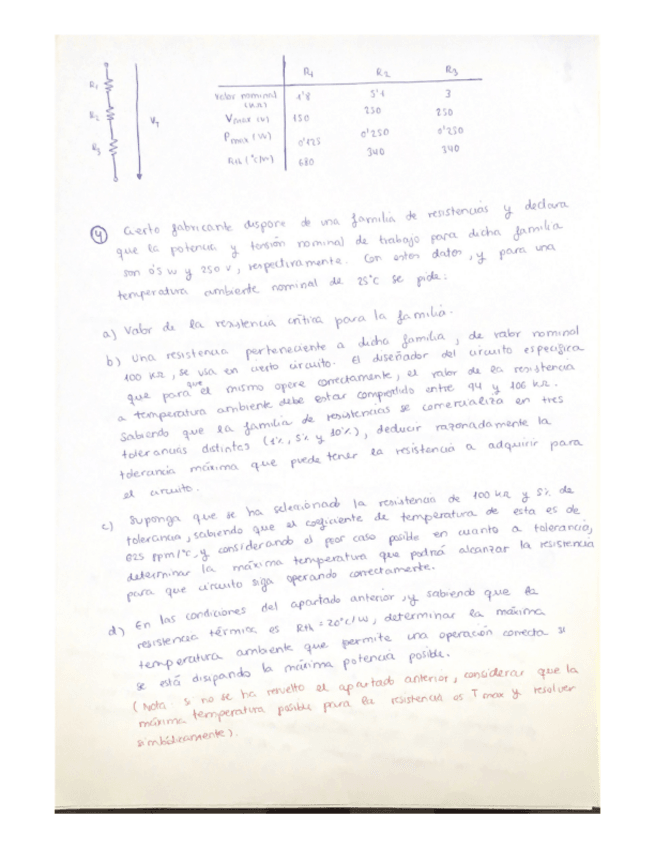 R1 R2 R3
R1
valor nominal (kΩ) 1'8 5'1 3
R2
Vmax (v) 150 250 250
VT
Pmax (W) 0'125 0'250 0'250
R3
(°C/W) 680 340 340
④ Cierto fabricante dispone de una familia de resistencias y declara
que la potencia y tensión nominal de trabajo para dicha familia
son 0'5 W y 250 V, respectivamente. Con estos datos, y para una
temperatura ambiente nominal de 25°C se pide:
a) Valor de la resistencia crítica para la familia.
b) Una resistencia perteneciente a dicha familia, de valor nominal
100 kΩ, se usa en cierto circuito. El diseñador del circuito especifica
que para que el mismo opere correctamente, el valor de la resistencia
a temperatura ambiente debe estar comprendido entre 94 y 106 kΩ.
Sabiendo que la familia de resistencias se comercializa en tres
tolerancias distintas (1%, 5% y 10%), deducir razonadamente la
tolerancia máxima que puede tener la resistencia a adquirir para
el circuito.
c) Suponga que se ha seleccionado la resistencia de 100 kΩ y 5% de
tolerancia, sabiendo que el coeficiente de temperatura de esta es de
625 ppm/°C, y considerando el peor caso posible en cuanto a tolerancia,
determinar la máxima temperatura que podrá alcanzar la resistencia
para que circuito siga operando correctamente.
d) En las condiciones del apartado anterior, y sabiendo que la
resistencia térmica es Rth = 20°C/W, determinar la máxima
temperatura ambiente que permite una operación correcta si
se está disipando la máxima potencia posible.
(Nota si no se ha resuelto el apartado anterior, considerar que la
máxima temperatura posible para la resistencia es Tmax y resolver
simbólicamente).